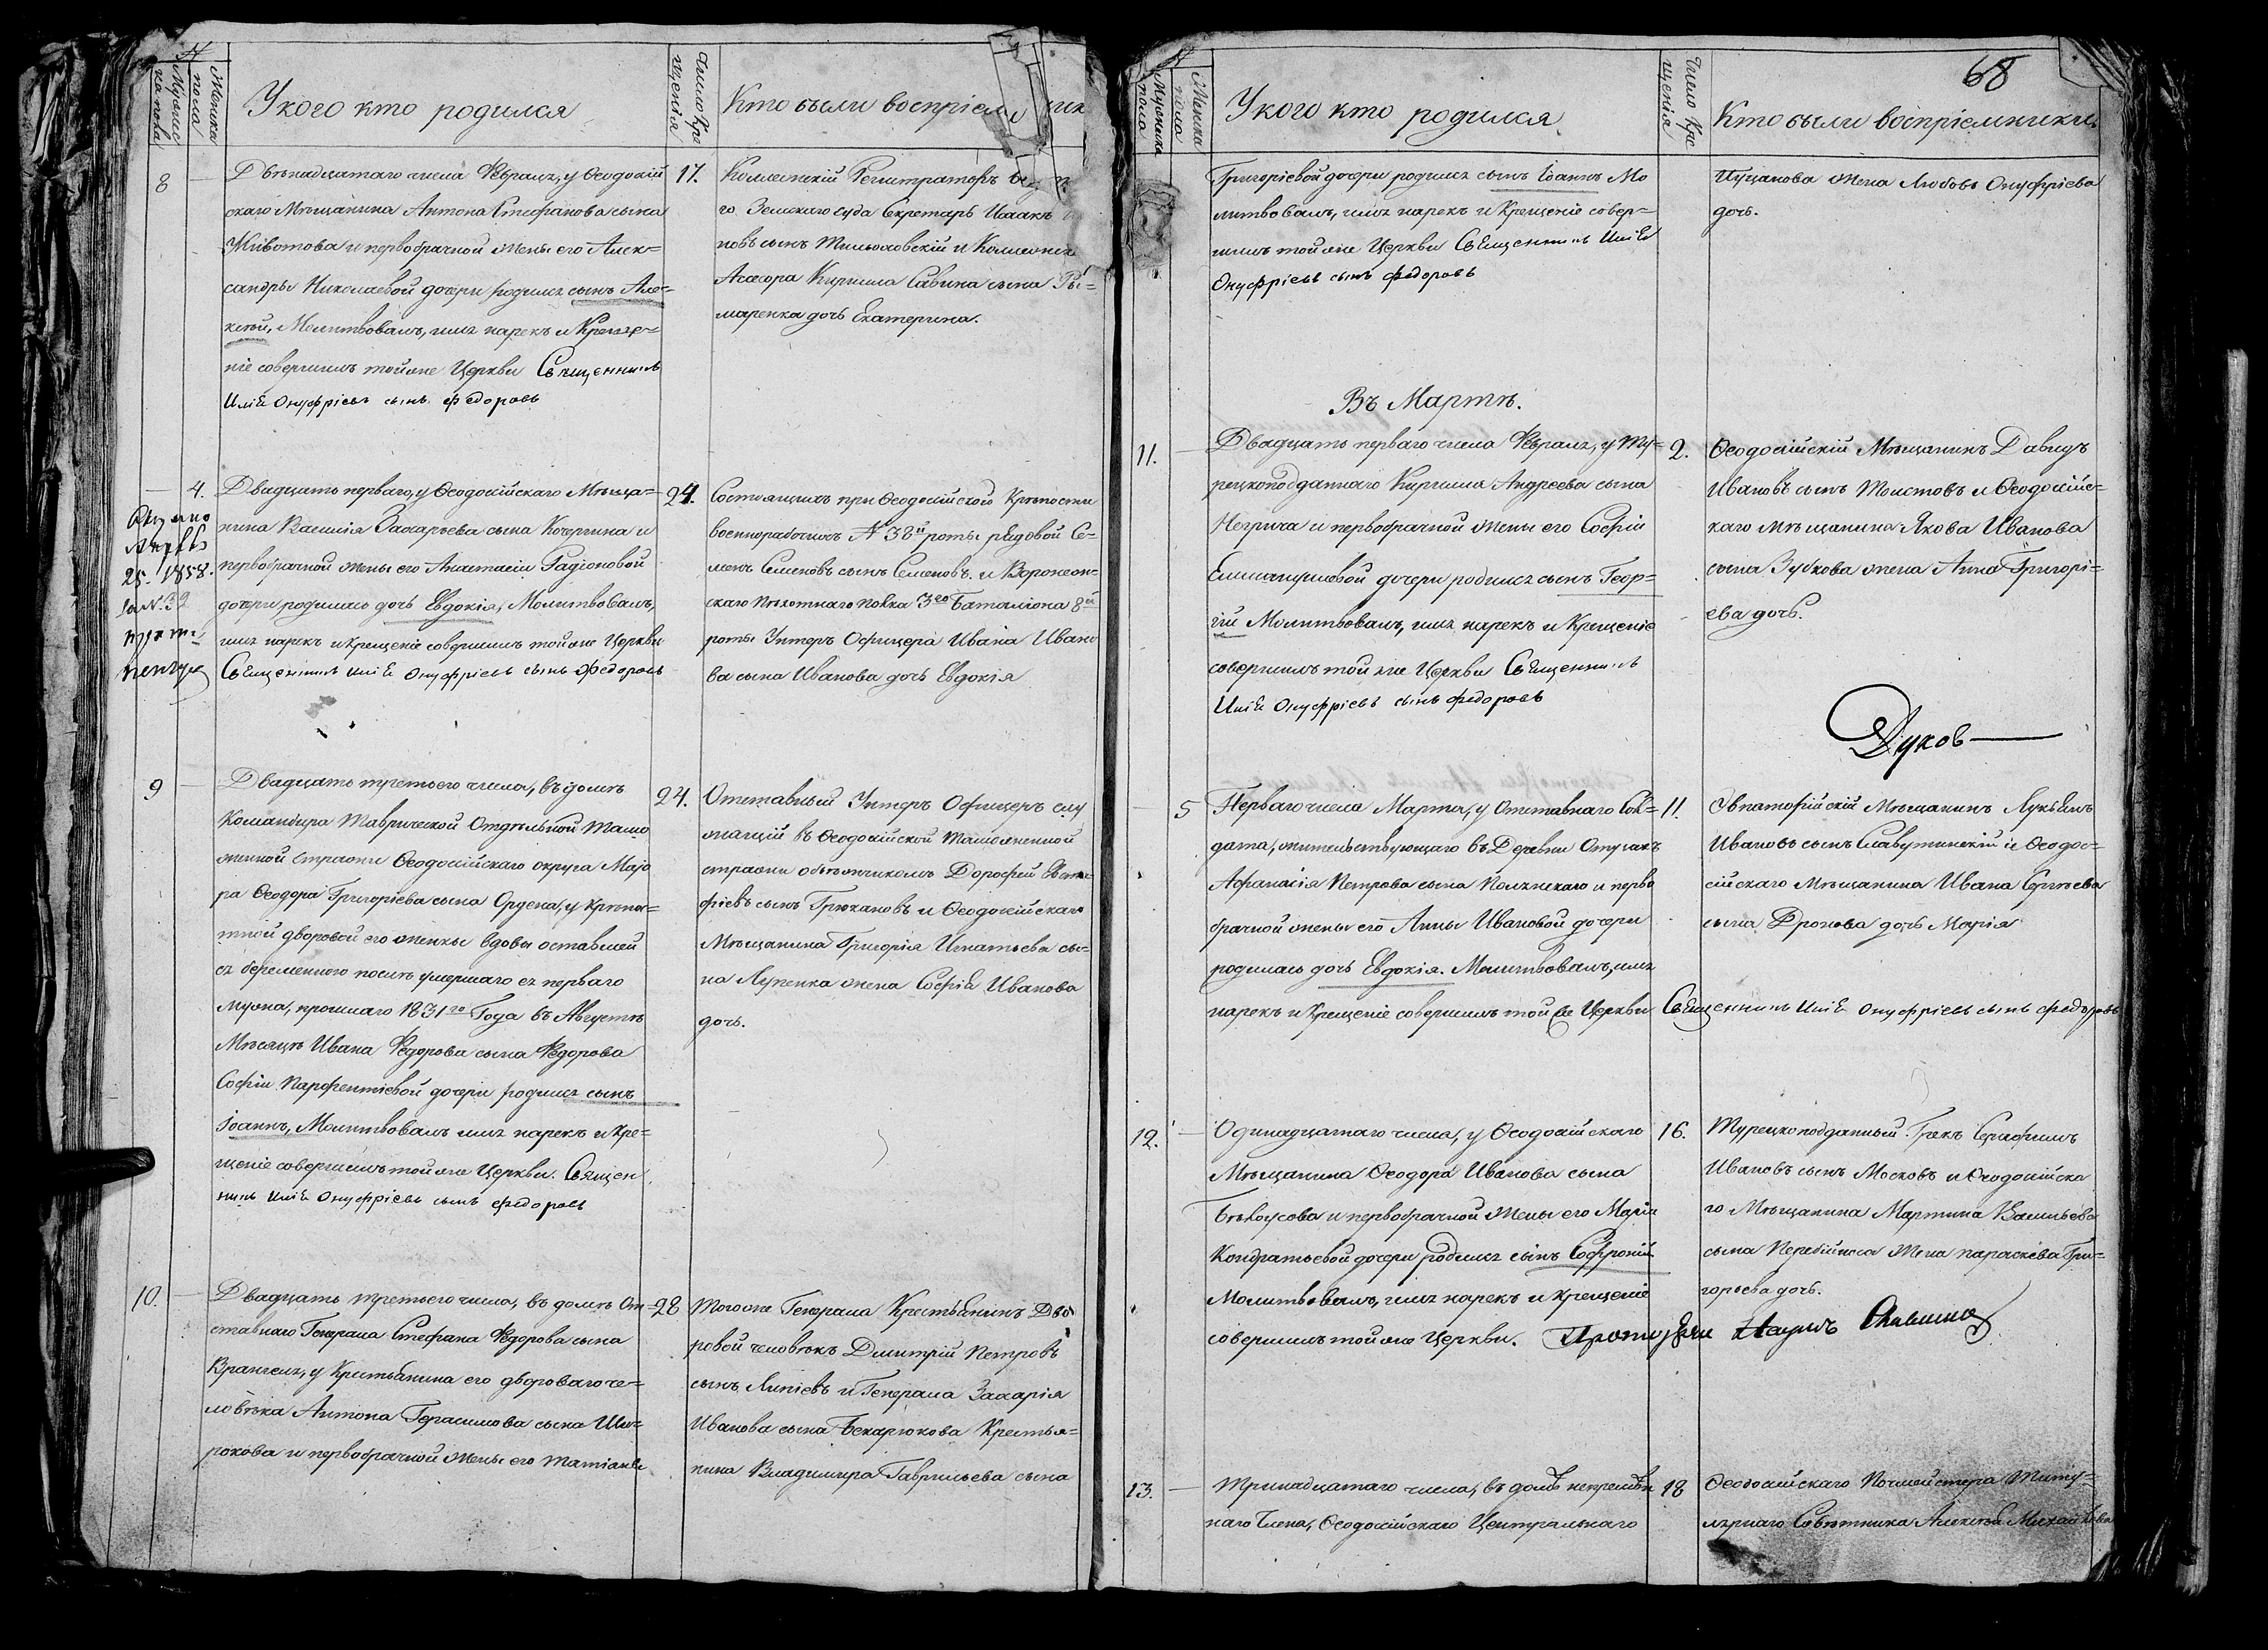 №
Мужес
ка пола
Женска
пола
У кого кто родился
Число Кре
щенія
Кто были воспріемни
8
Двенадцатаго числа Февраля, у Ѳеодосій
скаго Мѣщанина Антона Стефанова сына
Животова и первобрачной жены его Алек=
сандры Николаевой дочери родился сынъ Але=
ксѣй, Молитвовалъ, имя нарекъ и Креще=
ніе совершилъ тойже Церкви Священникъ
Илія Онуфріевъ сынъ Федоровъ
17.
Коллежскій Регистраторъ
го Земскаго суда Секретарь Исаакъ
новъ сынъ Тимоховскій и Коллежска
Асесора Кирилла Савина сына Ры=
маренка дочь Екатерина.
4.
25. 1858.
Двадцать перваго, у Ѳеодосійскаго Мѣща=
нина Василія Захарьева сына Кочергина и
первобрачной жены его Анастасіи Радіоновой
дочери родилась дочь Евдокія, Молитвовалъ,
имя нарекъ и крещеніе совершилъ тойже Церкви
Священникъ Илія Онуфріевъ сынъ Федоровъ
24.
Состоящихъ при Ѳеодосійской Крѣпости
военнорабочихъ № 38й роты рядовой Се=
менъ Семеновъ сынъ Семеновъ. и Воронеж=
скаго пѣхотнаго полка 3го Баталіона 8й
роты Унтеръ Офицера Ивана Ивано
ва сына Иванова дочь Евдокія
9
Двадцать третьего числа, въ домѣ
Командира Таврической Отдѣльной Тамо
женной Стражи Ѳеодосійскаго округа Маіо
ра Ѳеодора Григоріева сына Ордена, у крѣпос=
тной дворовой его женки вдовы оставшей
ся беременного послѣ умершаго ея перваго
мужа, прошлаго 1831го Года въ Августѣ
Мѣсяцѣ Ивана Федорова сына Федорова
Софіи Парфентіевой дочери родился сынъ
Іоаннъ, Молитвовалъ имя нарекъ и Кре=
щеніе совершилъ тойже Церкви. Священ
никъ Илія Онуфріевъ сынъ Федоровъ
24.
Отставный Унтеръ Офицеръ слу
жащій въ Ѳеодосійской Таможенной
стражи объѣзчикомъ Дорофей
фіевъ сынъ Грюкановъ и Ѳеодосійскаго
Мѣщанина Григорія Игнатьева сы=
на Лупенка жена Софія Иванова
дочь.
10.
Двадцать третьего числа, въ домѣ От=
ставнаго Генерала Стефана Федорова сына
Врангеля, у Крестьянина его двороваго че=
ловѣка Антона Герасимова сына Ши=
рокова и первобрачной жены его Татіаны
28
Тогоже Генерала Крестьянинъ Дво
ровой человѣкъ Димитрій Петровъ
сынъ Липіевъ и Генерала Захарія
Иванова сына Бекарюкова Крестья=
нина Владимира Гаврильева сына
68
№
Мужеска
пола
Женска
пола
У кого кто родился
Число Кре
щенія
Кто были воспріемники.
Григоріевой дочери родился сынъ Іоаннъ Мо
литвовалъ, имя нарекъ и Крещеніе совер=
шилъ тойже Церкви Священникъ Илія
Онуфріевъ сынъ Федоровъ
Пуцанова жена Любовь Онуфріева
дочь.
Въ Мартѣ.
11.
Двадцать перваго числа Февраля, у Ту=
рецкоподданнаго Кирилла Андреева сына
Негрича и первобрачной жены его Софіи
Еммануиловой дочери родился сынъ Геор=
гій Молитвовалъ, имя нарекъ и Крещеніе
совершилъ тойже Церкви Священникъ
Илія Онуфріевъ сынъ Федоровъ
2.
Ѳеодосійскій Мѣщанинъ Давидъ
Ивановъ сынъ Толстовъ и Ѳеодосійс=
каго мѣщанина Якова Иванова
сына Зубкова жена Анна Григорі=
ева дочь.
Духов
5
Перваго числа Марта, у Отставнаго Сол=
дата, жительствующаго въ Деревни Отузахъ
Афанасія Петрова сына Полянскаго и перво
брачной жены его Анны Ивановой дочери
родилась дочь Евдокія. Молитвовалъ, имя
нарекъ и Крещеніе совершилъ тойже Церкви Священникъ Илія Онуфріевъ сынъ Федоровъ
11.
Эвпаторійскій Мѣщанинъ Лукьянъ
Ивановъ сынъ Славутинскій и Ѳеодо=
сійскаго мѣщанина Ивана Сергѣева
сына Дронова дочь Марія
12.
Одинадцатаго числа, у Ѳеодосійскаго
Мѣщанина Ѳеодора Иванова сына
Бѣлоусова и первобрачной жены его Маріи
Кондратьевой дочери родился сынъ Софроній
Молитвовалъ, имя нарекъ и Крещеніе
совершилъ тойже Церкви. Протоіерей Наумъ
16.
Турецкоподданный Грекъ Серафимъ
Ивановъ сынъ Московъ и Ѳеодосійска
го Мѣщанина Мартина Васильева
сына Перебійноса жена параскева Гри=
горьева дочь.
13.
Тринадцатаго числа, въ домѣ непремѣн
наго Члена, Ѳеодосійскаго Центральнаго
18
Ѳеодосійскаго Почмейстера Титу=
лярнаго Совѣтника Алексѣя Михайлова